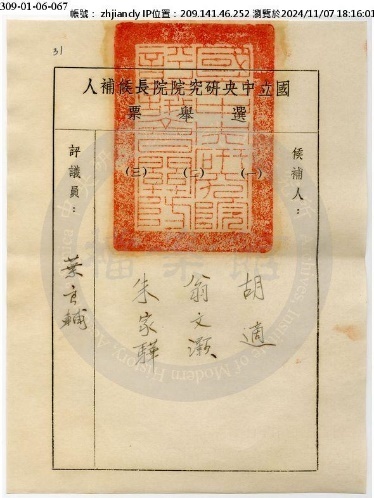 309-01-06-067
帳號： zhjiandy IP位置：209.141.46.252 瀏覽於2024/11/07 18:16:01
31
國立中央研究院院長候補人
選舉票
候補人：
(一) 胡適
(二) 翁文灝
(三) 朱家驊
評議員：葉良輔